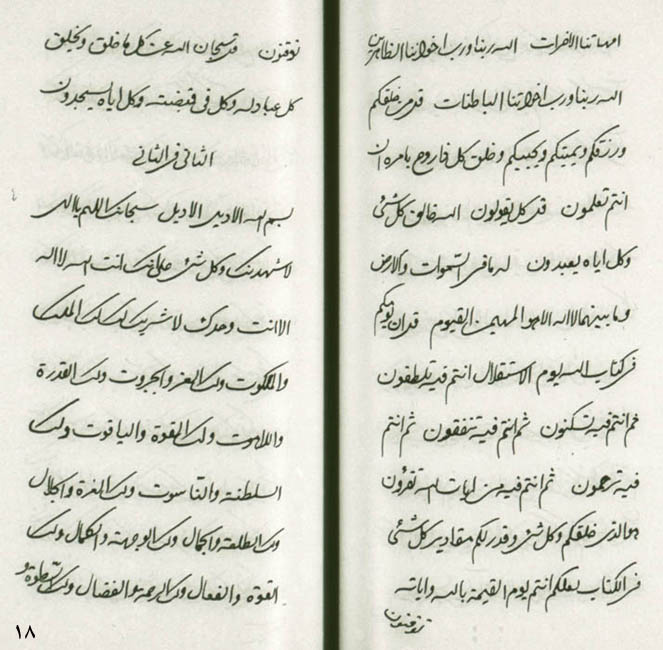 امهاتنا الاخرات الله ربنا ورب اخواتنا الظاهرين
الله ربنا ورب اخواتنا الباطنات قد من خلقكم
ورزقكم ويميتكم ويحييكم وخلق كل ذا روح بامره ان
انتم تعلمون قد كل يقولون الله خالق كل شئ
وكل اياه يعبدون له ما فى السموات والارض
وما بينهما لا اله الا هو المهيمن القيوم قد ان يوتكم
فى كتاب الله يوم الاستقلال انتم فيه تلطفون
ثم انتم فيه تسكنون ثم انتم فيه تنفقون ثم انتم
فيه ترحمون ثم انتم فيه من ايات الله تقرؤن
هو الذى خلقكم وكل شئ وقدر لكم مقادير كل شئ
فى الكتاب لعلكم انتم يوم القيمة بالله واياته
توقنون
توقنون قد سبحان الله عن كل ما خلق ويخلق
كل عباد له وكل فى قبضته وكل اياه يسجدون
الثانى فى الثانى
بسم الله سبحانك اللهم يا الهى
لاشهدنك وكل شئ على انك انت الله لا اله
الا انت وحدك لا شريك لك لك الملك
والملكوت ولك العز والجبروت ولك القدرة
واللاهوت ولك القوة والياقوت ولك
السلطنة والناسوت ولك العزة والجلال
ولك الطلعة والجمال ولك الوجهة والكمال ولك
القوة والفعال ولك الرحمة والفضال ولك السطوة و
١٨